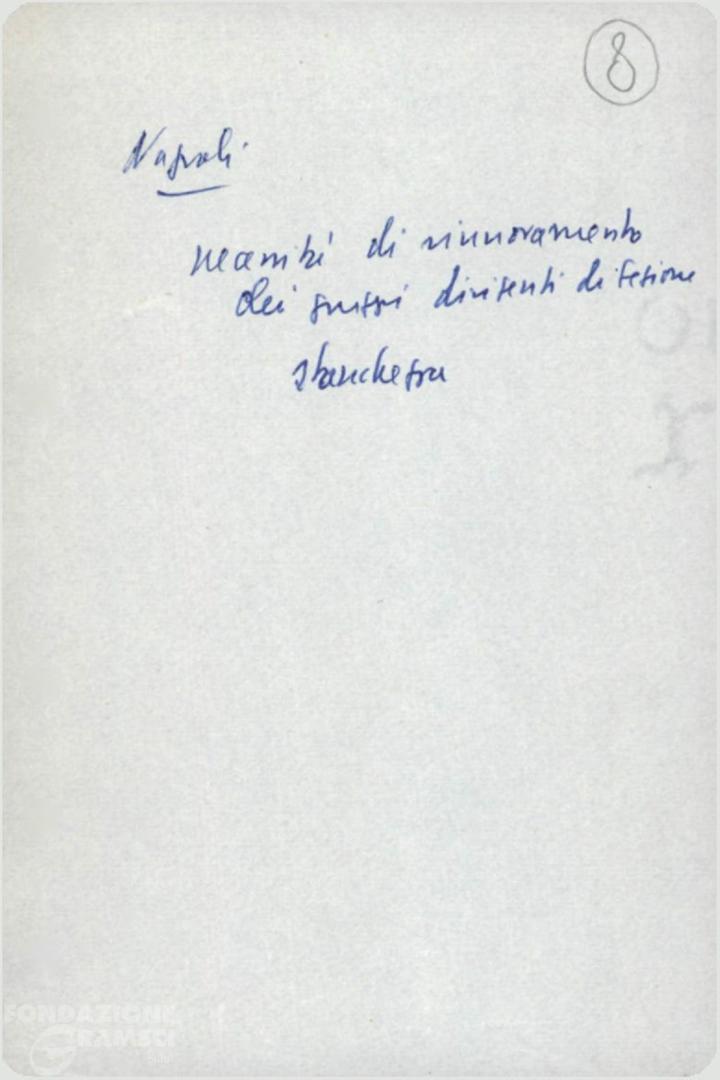 8
Napoli
necessità di rinnovamento
dei gruppi dirigenti di sezione
stanchezza
FONDAZIONE
GRAMSCI